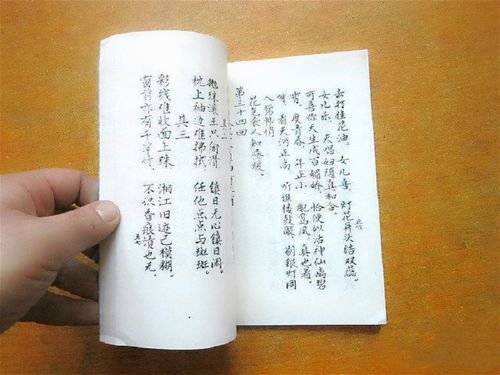 去打桂花油。 女儿喜，灯花并头结双蕊。
女儿乐，夫唱妇随真和合。
可喜你天生成百媚娇，恰便似活神仙离碧
霄。度青春，年正小，配鸾凤，真也着。
呀，看天河正高，听谯楼鼓敲，剔银灯同
入鸳帏悄
花气袭人知昼暖。
第三十四回
抛珠滚玉只偷潸，镇日无心镇日闲。
枕上袖边难拂拭，任他点点与斑斑。
其三
彩线难收面上珠，湘江旧迹已模糊。
窗前亦有千竿竹，不识香痕渍也无。